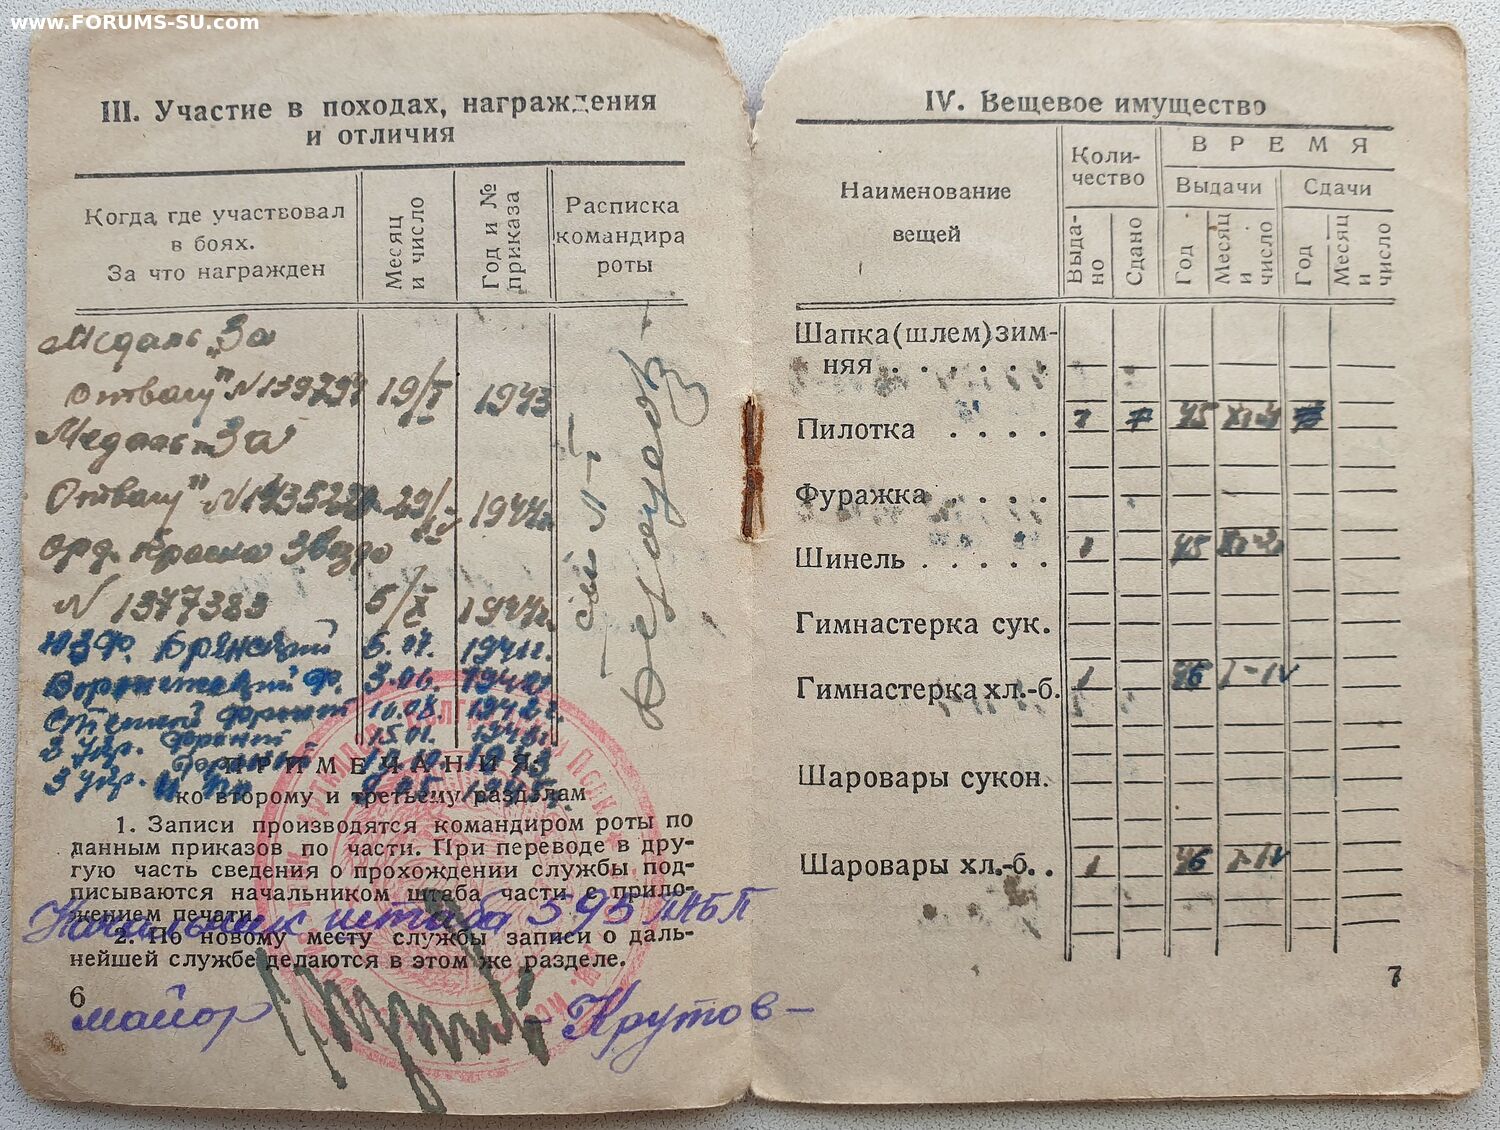 www.FORUMS-SU.com
III. Участие в походах, награждения
и отличия
Когда, где участвовал
в боях.
За что награжден
Месяц
и число
Год и №
приказа
Расписка
командира
роты
Медаль „За
Отвагу" N 139794 19/I 1943
Медаль „За
Отвагу" N 29/IV 1944г.
Орд. Красна Звезда
N 1377383 5/X 1944г.
ЮЗФ. Брянский 6.07. 1941г.
Воронежский Ф. 3.06.
Степной фронт 10.08.
3 Укр. Фронт 15.01.
3 Укр.
ПРИМЕЧАНИЯ:
ко второму и третьему разделам
1. Записи производятся командиром роты по
данным приказов по части. При переводе в дру-
гую часть сведения о прохождении службы под-
писываются начальником штаба части с прило-
жением печати.
Начальник штаба 593
2. По новому месту службы записи о даль-
нейшей службе делаются в этом же разделе.
6
майор Крутов
IV. Вещевое имущество
Наименование
вещей
Коли-
чество
ВРЕМЯ
Выдачи
Сдачи
Выда-
но
Сдано
Год
Месяц
и
число
Год
Месяц
и
число
Шапка (шлем) зим-
няя . . . . . .
Пилотка . . . . 1 45
Фуражка . . . .
Шинель . . . . . 1 45
Гимнастерка сук.
Гимнастерка хл.-б. 1 46 I-IV
Шаровары сукон.
Шаровары хл.-б. . 1 46 I-IV
7